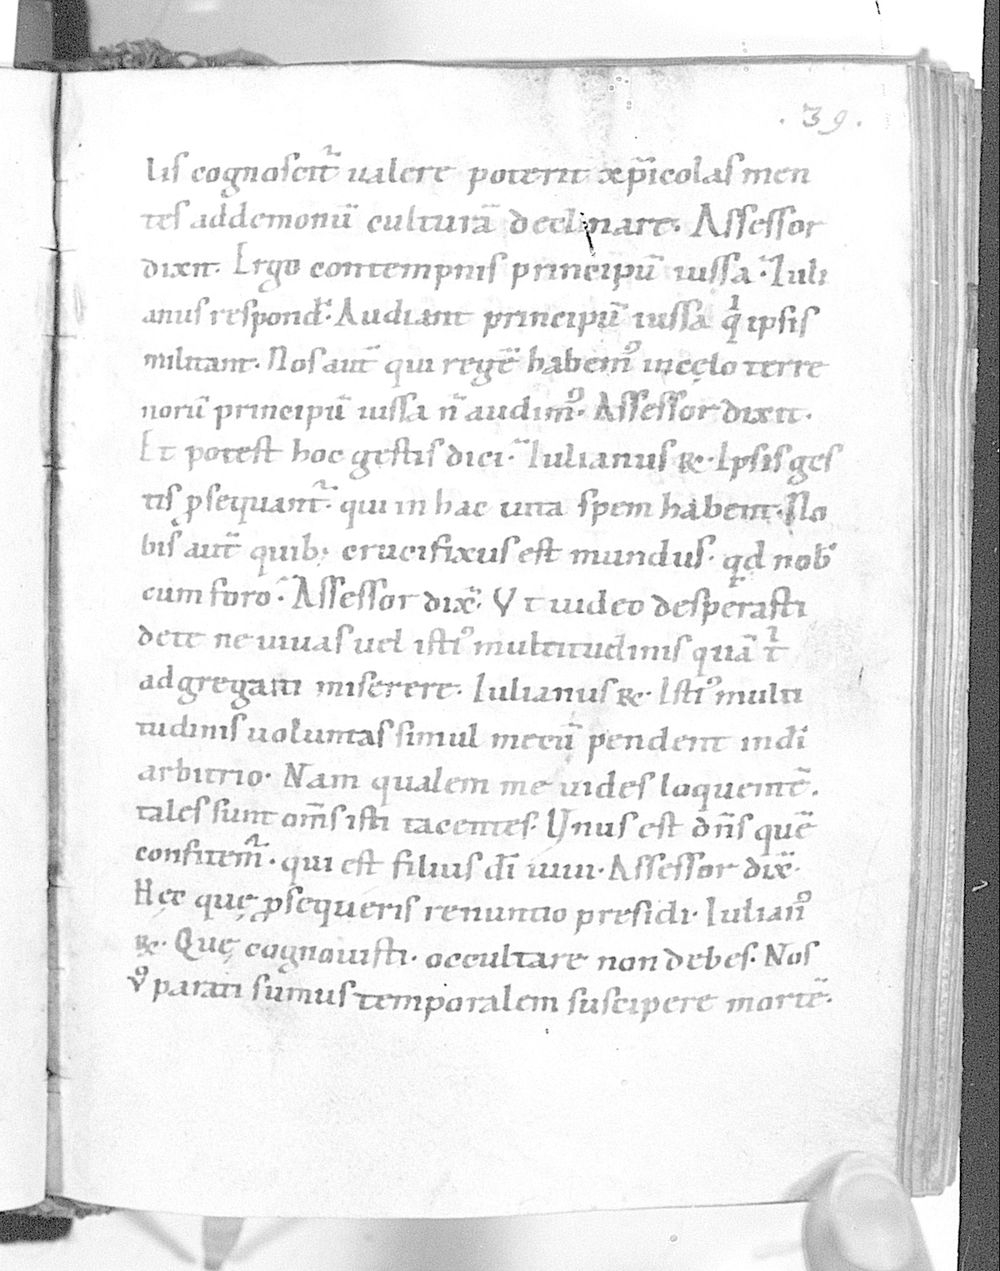 .39.
lis cognoscit̄ ualere poterit xp̄icolas men
tes ad demoniū culturā declinare. Assessor
dixit. Ergo contempnis principū iussa. Iuli
anus respond̄. Audiant principū iussa qⁱ ipsis
militant. Nos aut̄ qui regē habemꝰ in cęlo terre
norū principū iussa n̄ audimꝰ. Assessor dixit.
Et potest hoc gestis dici. Iulianus R̄. Ipsis ges
tis ꝑsequant̄. qui in hac uita spem habent. No
bis aut̄ quib; crucifixus est mundus. qd nob̄
cum foro. Assessor dix̄. Vt uideo desperasti
de te ne uiuas uel istiꝰ multitudinis quā tⁱ
adgregasti miserere. Iulianus R̄. Istiꝰ multi
tudinis uoluntas simul mecū pendent in dī
arbitrio. Nam qualem me uides loquentē.
tales sunt om̄s isti tacentes. Vnus est dn̄s quē
confitem̄. qui est filius dī uiui. Assessor dix̄.
Hęc quę ꝓsequeris renuntio presidi. Iulianꝰ
R̄. Quę cognouisti. occultare non debes. Nos
ỽ parati sumus temporalem suscipere mortē.